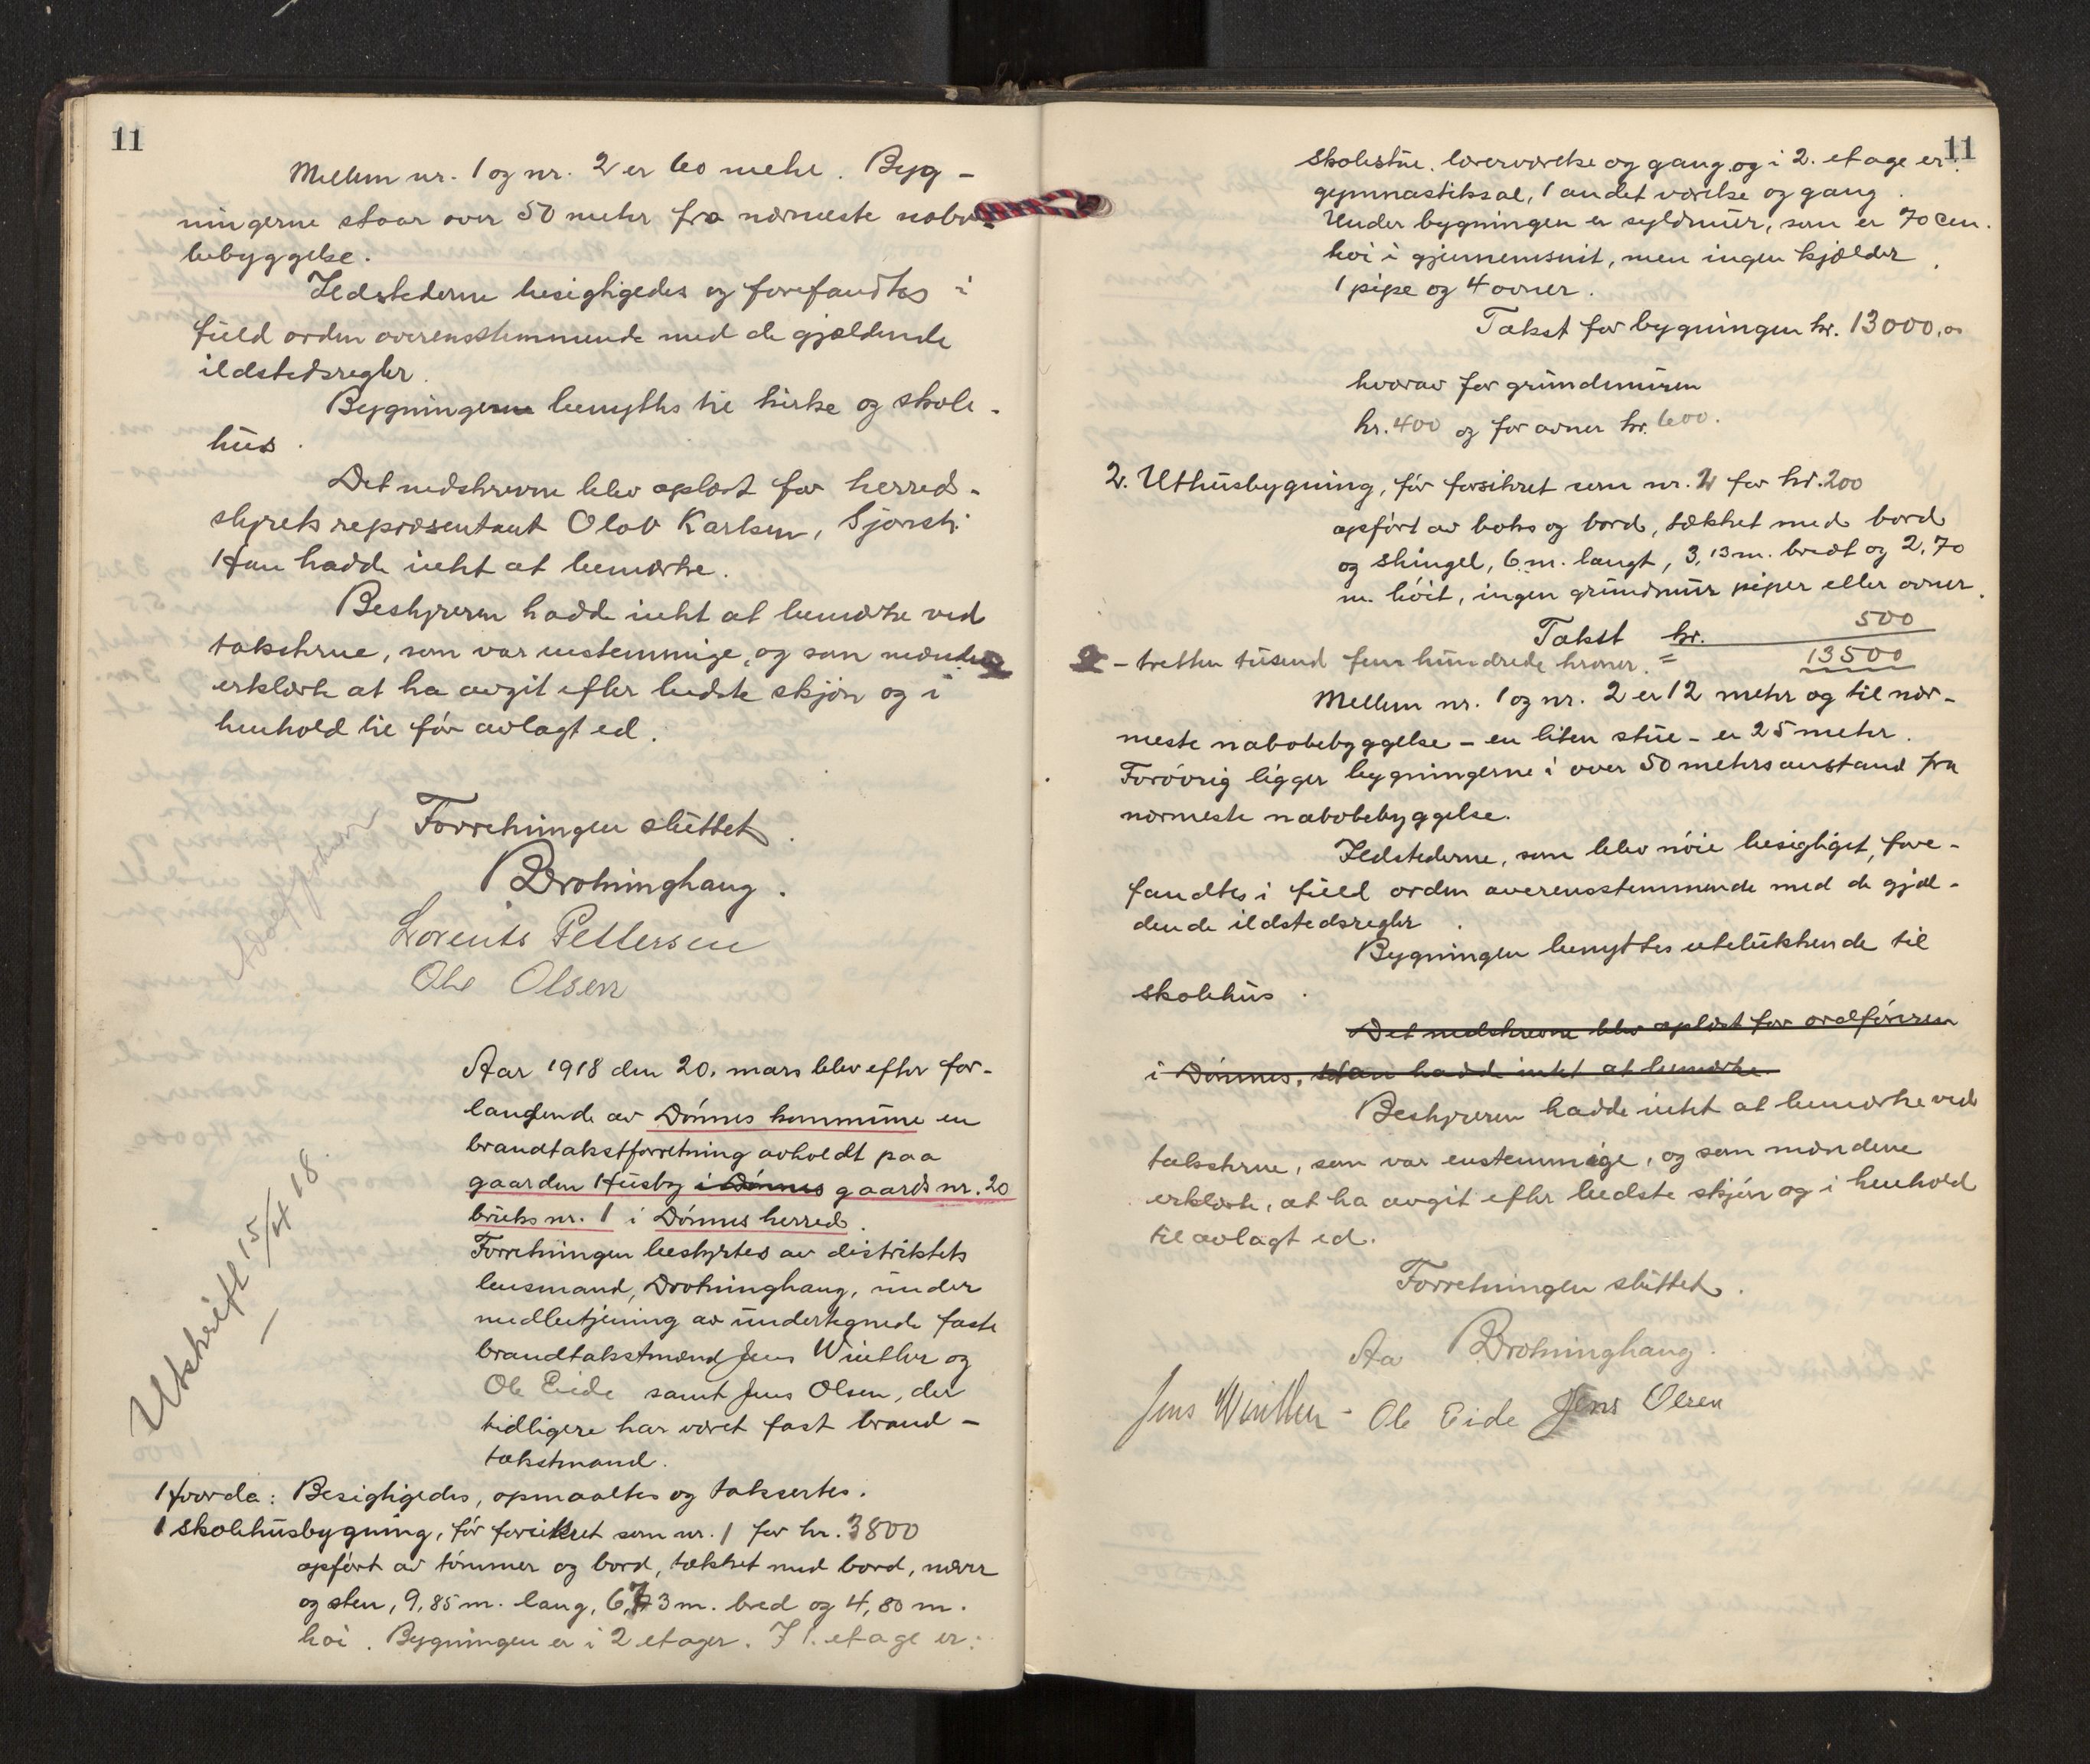 11
Mellem nr. 1 og nr. 2 er 60 meter. Byg-
ningerne staar over 50 meter fra nærmeste nabo-
bebyggelse.
Ildstederne besigtigedes og forefandtes i
fuld orden overensstemmende med de gjældende
ildstedsregler.
Bygningerne benyttes til kirke og skole-
hus.
Det nedskrevne blev oplæst for herreds-
styrets repræsentant Olav Karlsen,
Han hadde intet at bemærke.
Bestyreren hadde intet at bemærke ved
taksterne, som var enstemmige, og som mændene
erklærte at ha avgit efter bedste skjøn og i
henhold til før avlagt ed.
Forretningen sluttet.
Drotninghaug.
Lorents Pettersen
Ole Olsen
Aar 1918 den 20. mars blev efter for-
langende av Dønnes kommune en
brandtakstforretning avholdt paa
gaarden Húsby i Dønnes gaards nr. 20
bruks nr. 1 i Dønnes herred.
Forretningen bestyrtes av distriktets
lensmand, Drotninghaug, under
medbetjening av undertegnede faste
brandtakstmænd Jens Winther og
Ole Eide samt Jens Olsen, der
tidligere har været fast brand-
takstmand.
Utskrift 15/4 18.
Hvorda: Besigtigedes, opmaaltes og taksertes.
1 Skolehusbygning, før forsikret som nr. 1 for kr. 3800
opført av tømmer og bord, tækket med bord, næver
og sten, 9,85 m. lang, 6,73 m. bred og 4,80 m.
høi. Bygningen er i 2 etager. I 1. etage er:
11
skolestue, lærerværelse og gang og i 2. etage er:
gymnastiksal, 1 andet værelse og gang.
Under bygningen er syldmur, som er 70 cm.
høi i gjennemsnit, men ingen kjælder.
1 pipe og 4 ovner.
Takst for bygningen kr. 13000,00
hvorav for grundmuren
kr. 400 og for ovner kr. 600.
2. Uthusbygning, før forsikret som nr. 2 for kr. 200
opført av boks og bord, tækket med bord
og shingel, 6 m. langt, 3,13 m. bredt og 2,70
m. høit, ingen grundmur piper eller ovner.
Takst kr. 500
- tretten tusend fem hundrede kroner. = 13500
Mellem nr. 1 og nr. 2 er 12 meter og til nær-
meste nabobebyggelse - en liten stue - er 25 meter.
Forøvrig ligger bygningerne i over 50 meters avstand fra
nærmeste nabobebyggelse.
Ildstederne, som blev nøie besigtiget, fore-
fandtes i fuld orden overensstemmende med de gjæl-
dende ildstedsregler.
Bygningen benyttes utelukkende til
skolehus.
Det nedskrevne blev oplæst for ordføreren
i Dønnes. Han hadde intet at bemærke.
Bestyreren hadde intet at bemærke ved
taksterne, som var enstemmige, og som mændene
erklærte, at ha avgit efter bedste skjøn og i henhold
til avlagt ed.
Forretningen sluttet.
Aa Drotninghaug.
Jens Winther - Ole Eide Jens Olsen